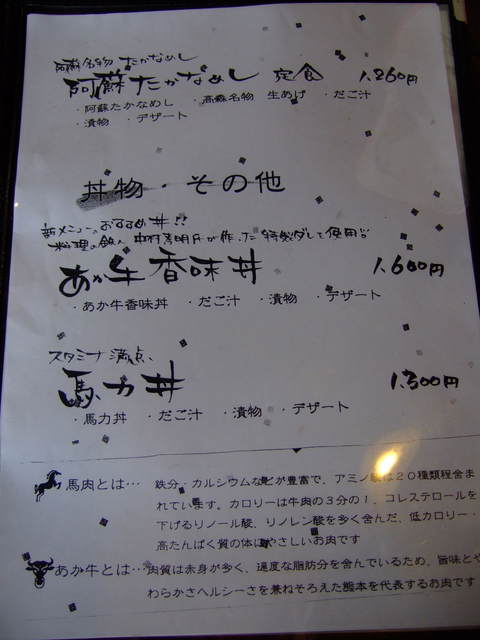 阿蘇名物 たかなめし
阿蘇たかなめし 定食 1,260円
・阿蘇たかなめし ・高森名物 生あげ ・だご汁
・漬物 ・デザート
丼物・その他
新メニューのおすすめ丼!!
料理の鉄人 中村孝明氏が作った特製ダレで使用!!
あか牛香味丼 1,600円
・あか牛香味丼 ・だご汁 ・漬物 ・デザート
スタミナ満点、
馬力丼 1,300円
・馬力丼 ・だご汁 ・漬物 ・デザート
馬肉とは… 鉄分・カルシウムなどが豊富で、アミノ酸は20種類程含ま
れています。カロリーは牛肉の3分の1、コレステロールを
下げるリノール酸、リノレン酸を多く含んだ、低カロリー・
高たんぱく質の体にやさしいお肉です
あか牛とは… 肉質は赤身が多く、適度な脂肪分を含んでいるため、旨味とや
わらかさヘルシーさを兼ねそろえた熊本を代表するお肉です